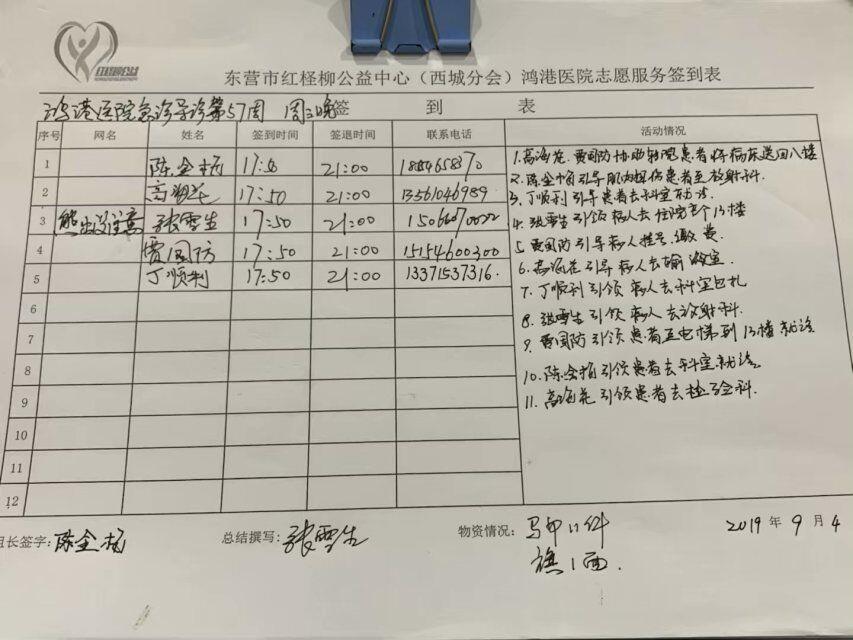 东营市红柽柳公益中心（西城分会）鸿港医院志愿服务签到表
鸿港医院急诊导诊第57周 周三晚 签 到 表
序号 网名 姓名 签到时间 签退时间 联系电话 活动情况
1 17:50 21:00
2 高海花 17:50 21:00 13561046959
3 熊出没注意 张雪生 17:50 21:00
4 贾国防 17:50 21:00 15154600300
5 丁顺利 17:50 21:00 13371537316.
6
7
8
9
10
11
12
1.高海花.贾国防协助转院患者将病床送回八楼
2.引导肌肉损伤患者至放射科.
3.丁顺利引导患者去科室就诊.
4.张雪生引领病人去13楼
5.贾国防引导病人挂号.缴费.
6.高海花引导病人去输液室.
7.丁顺利引领病人去科室包扎
8.张雪生引领病人去放射科.
9.贾国防引领患者至电梯到13楼就诊
10.引领患者去科室就诊.
11.高海花引领患者去检验科.
组长签字:
总结撰写: 张雪生
物资情况: 马甲11件
旗1面.
2019年9月4